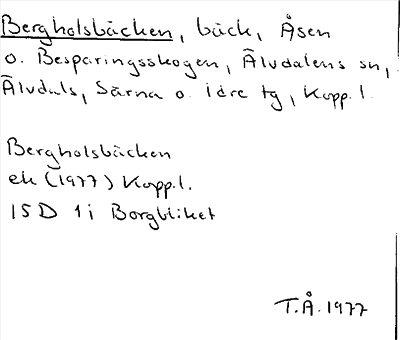 Bergholsbäcken, bäck, Åsen
o. Besparingsskogen, Älvdalens sn,
Älvdals, Särna o. Idre tg, Kopp.l.
Bergholsbäcken
ek (1977) Kopp.l.
15D 1i Borgbliket
T.Å. 1977